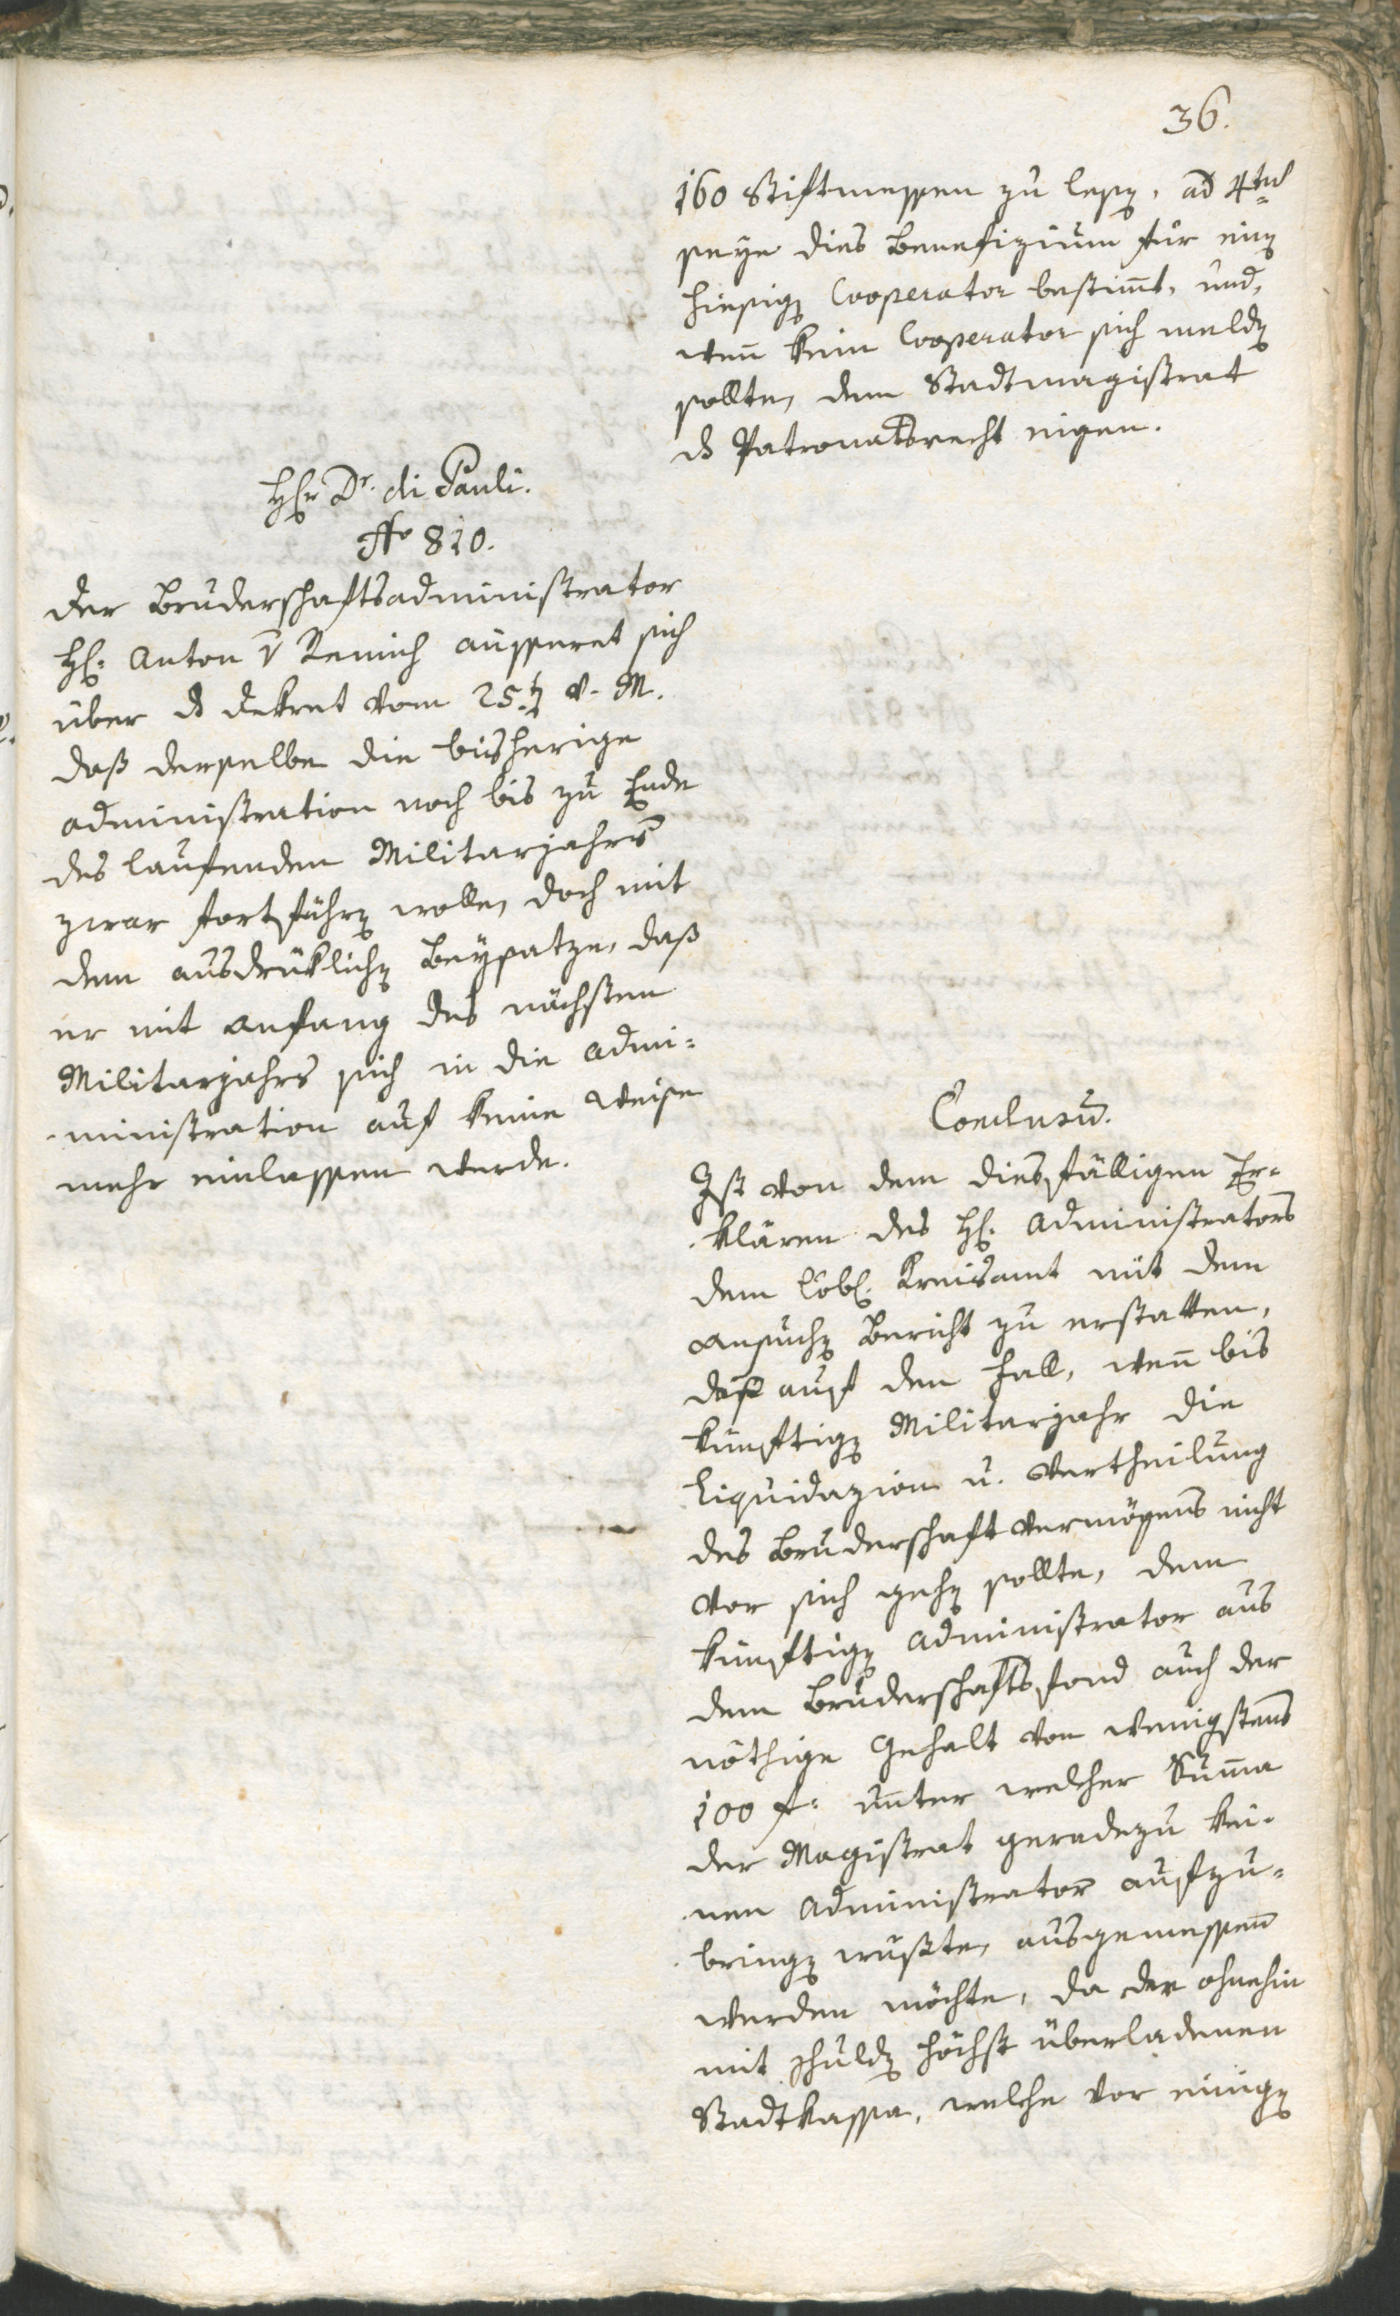 36.
160 Stiftmessen zu lesen, ad 4tus
seye dies Benefizium für einen
hiesigen Cooperator bestimt, und,
wenn kein Cooperator sich melden
sollte, dem Stadtmagistrat
ds Patronatsrecht eigen.
Hr Dr. di Pauli.
No 810.
Der Bruderschaftsadministrator
H: Anton v Remich äusseret sich
über ds Dekret vom 25.ten v. M.
daß derselbe die bisherige
Administration noch bis zu Ende
des laufenden Militarjahrs
zwar fortführen wolle, doch mit
dem ausdrüklichen Beysatze, daß
er mit Anfang des nächsten
Militarjahrs sich in die Admi=
ministration auf keine Weise
mehr einlassen werde.
Conclusum.
Ist von dem diesfälligen Er=
klären des H. Administrators
dem löbl. Kreisamt mit dem
Ansuchen Bericht zu erstatten,
daß auf den Fall, wenn bis
künftigen Militarjahr die
Liquidazion u. Vertheilung
des Bruderschaftvermögens nicht
vor sich gehen sollte, dem
künftigen Administrator aus
dem Bruderschaftsfond auch der
nöthige Gehalt von wenigstens
100 f: unter welcher Summa
der Magistrat geradezu kei=
nen Administrator aufzu=
bringen wußte, ausgemessen
werden möchte, da der ohnehin
mit Schulden höchst überladenen
Stadtkassa, welche vor einigen